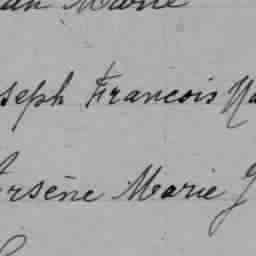 Marie
seph Francois
rsène Marie J